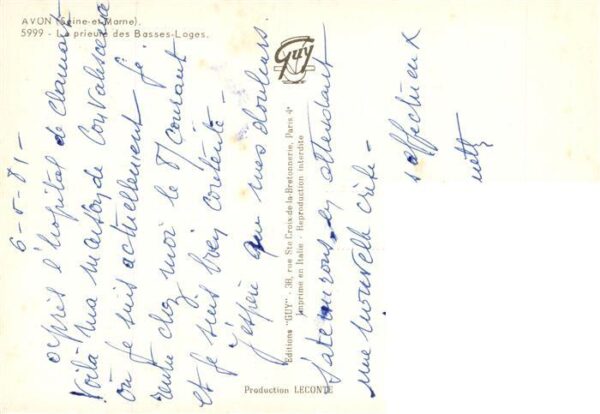 AVON (Seine-et-Marne).
5999 - Le prieuré des Basses-Loges.
Guy
Editions "GUY" - 38, rue Ste Croix-de-la-Bretonnerie, Paris 4e
Imprimé en Italie - Reproduction interdite
Production LECONTE
6-5-81-
après l'hôpital de Clamart
Voilà ma maison de Convalescence
où je suis actuellement je
rentre chez moi le 8 courant
et je suis bien contente -
j'espère que mes douleurs
s'atténuerons, en attendant
une nouvelle crise -
affectueux